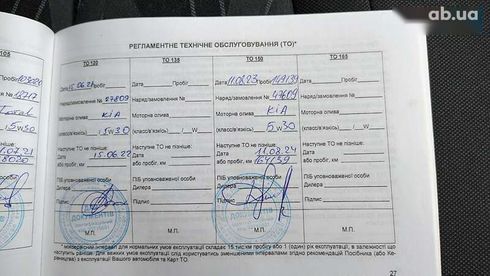 ab.ua
РЕГЛАМЕНТНЕ ТЕХНІЧНЕ ОБСЛУГОВУВАННЯ (ТО)*
ТО 120
ТО 135
ТО 150
ТО 165
Дата 15.06.21 Пробіг
Дата Пробіг
Дата 11.08.23 Пробіг 149139
Дата Пробіг
Наряд/замовлення № 27809
Наряд/замовлення №
Наряд/замовлення № 47609
Наряд/замовлення №
Моторна олива
KIA
Моторна олива
Моторна олива
KIA
Моторна олива
(класс/в'язк.) 5W30
(класс/в'язк.) /_W
(класс/в'язк.) 5W30
(класс/в'язк.) /_W
Наступне ТО не пізніше:
Дата 15.06.22
або пробіг, км
Наступне ТО не пізніше:
Дата
або пробіг, км
Наступне ТО не пізніше:
Дата 11.08.24
або пробіг, км 164139
Наступне ТО не пізніше:
Дата
або пробіг, км
ПІБ уповноваженої особи
Дилера
Підпис
М.П.
ПІБ уповноваженої особи
Дилера
Підпис
М.П.
ПІБ уповноваженої особи
Дилера
Підпис
М.П.
ПІБ уповноваженої особи
Дилера
Підпис
М.П.
* міжсервісний інтервал для нормальних умов експлуатації складає 15 тис.км пробігу або 1 (один) рік експлуатації, в залежності що
наступить раніше. Для важких умов експлуатації слід користуватись зменшеними інтервалами згідно рекомендацій Посібника (або Ке-
рівництва) з експлуатації Вашого автомобіля та Карт ТО.
27